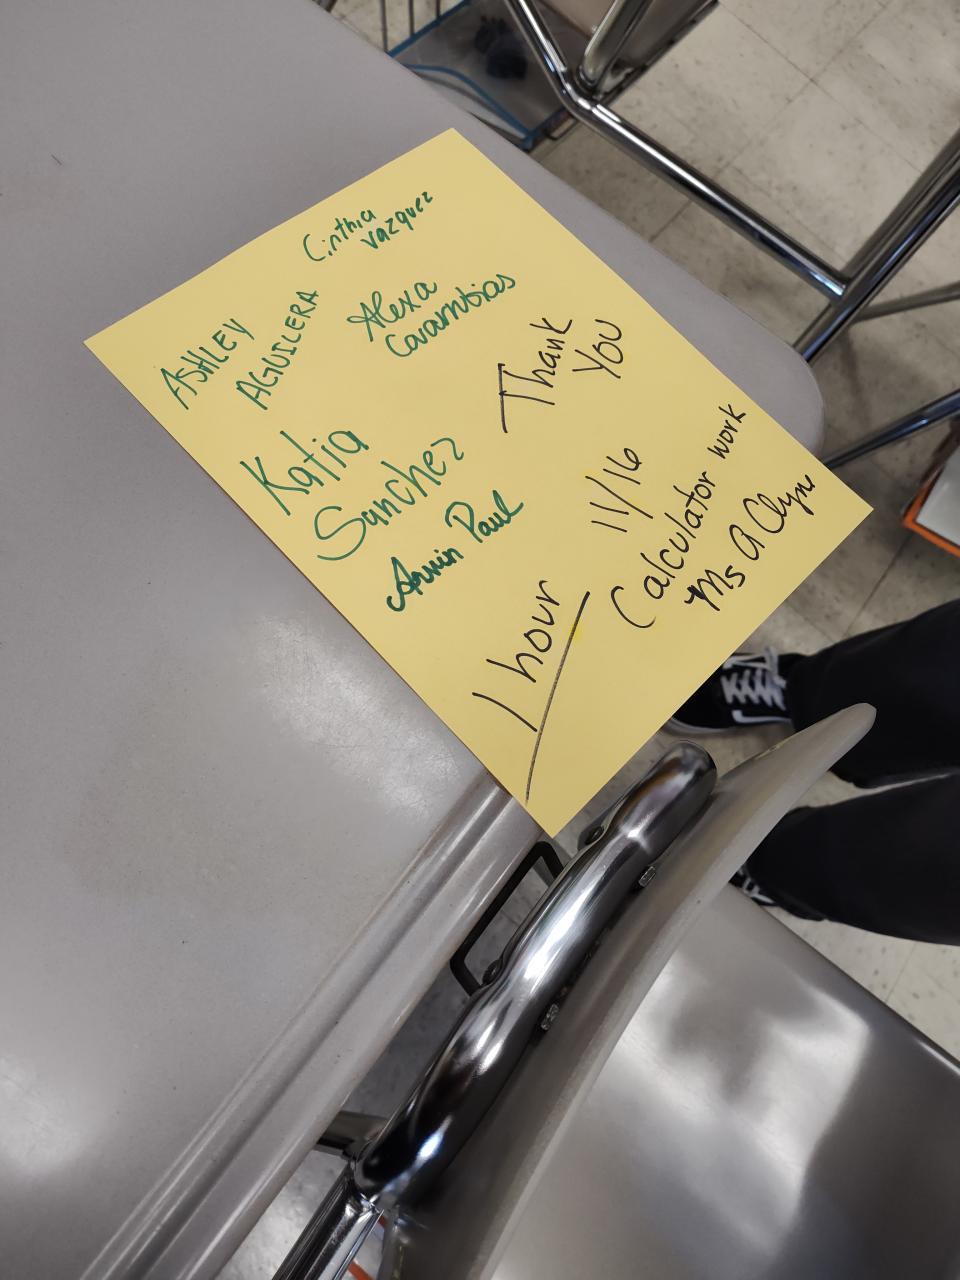 Cinthia
Vazquez
ASHLEY
AGUILERA
Alexa
Covarrubias
Katia
Sanchez
Armin Paul
Thank
You
11/16
Calculator work
Ms A Clyne
1 hour